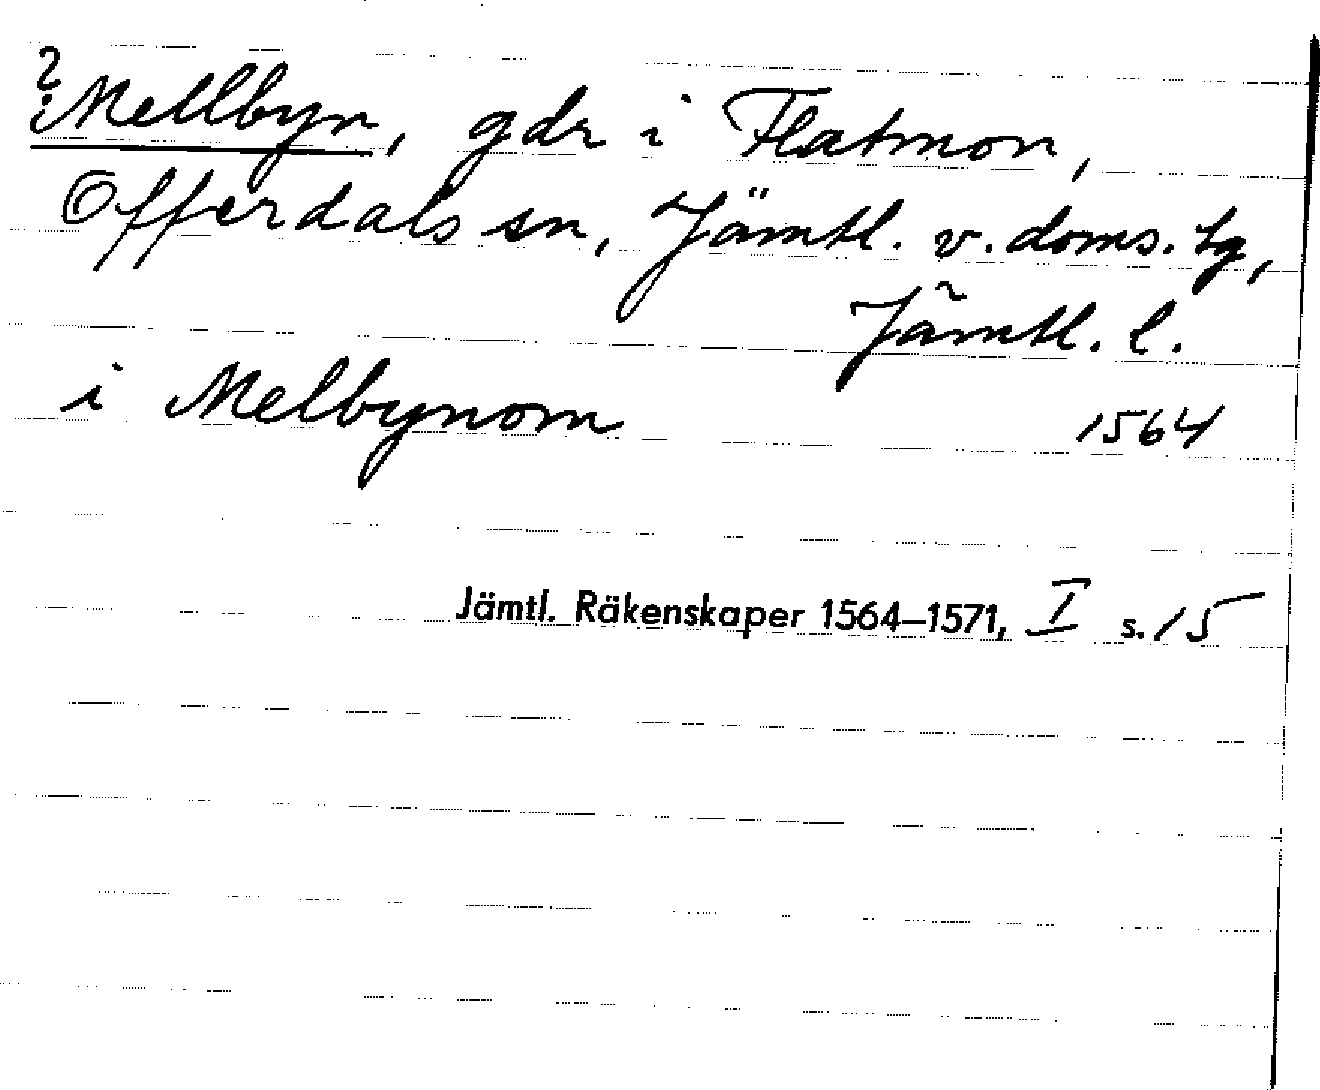 ? Mellbyn, gdr i Flatmon,
Offerdals sn, Jämtl. v. doms. tg,
Jämtl. l.
i Melbynom 1564
Jämtl. Räkenskaper 1564–1571, I s. 15